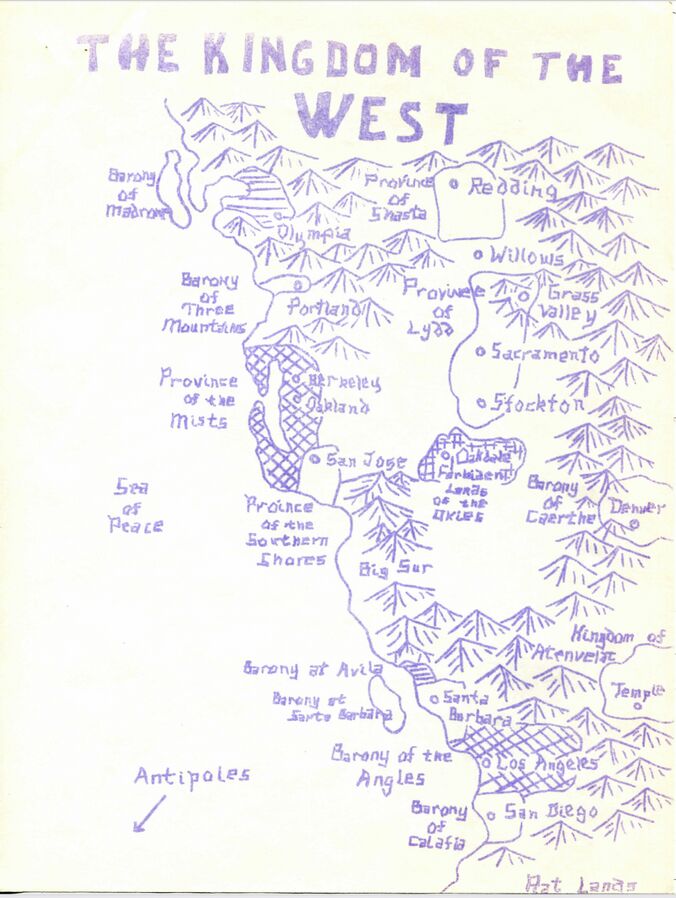 THE KINGDOM OF THE
WEST
Barony
of
Madrone
Province
of
Shasta
Redding
Olympia
Willows
Barony
of
Three
Mountains
Portland
Province
of
Lydd
Grass
Valley
Sacramento
Province
of the
Mists
Berkeley
Oakland
Stockton
San Jose
Oakdale
Forbident
Lands
of the
Okies
Sea
of
Peace
Proince
of the
Southern
Shores
Barony
of
Caerthe
Denver
Big Sur
Kingdom of
Atenvelat
Barony at Avila
Temple
Barony at
Santa Barbara
Santa
Barbara
Barony of the
Angles
Los Angeles
Antipoles
Barony
of
Calafia
San Diego
Rat Lands